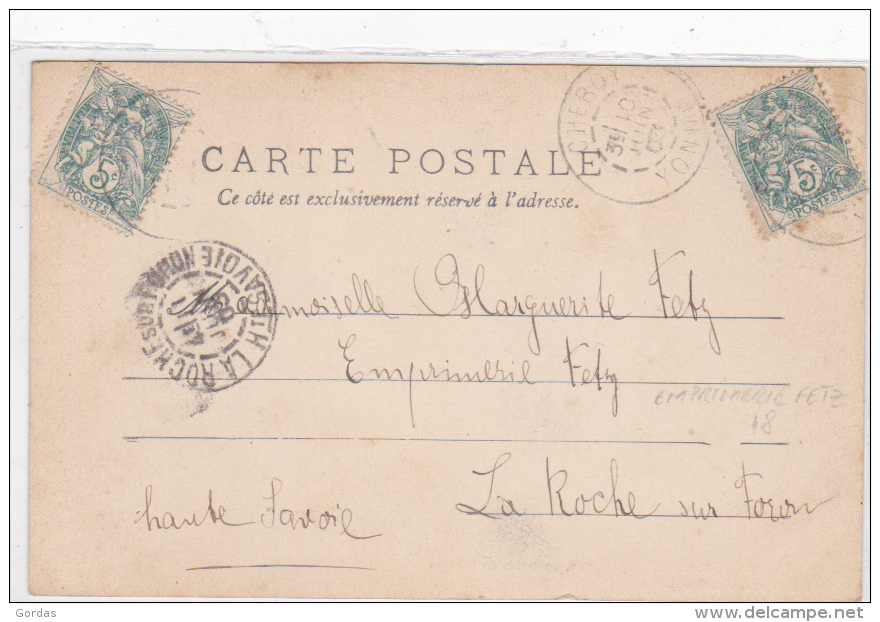 CARTE POSTALE
Ce côté est exclusivement réservé à l'adresse.
5c
POSTES
5c
POSTES
CHEROY
YONNE
10
JUIN
03
LA ROCHE SUR FORON
HTE SAVOIE
Mademoiselle Marguerite Fetz
Emprimerie Fetz
EMPRIMERIE FETZ
18
La Roche sur Foron
haute Savoie
Gordas
www.delcampe.net